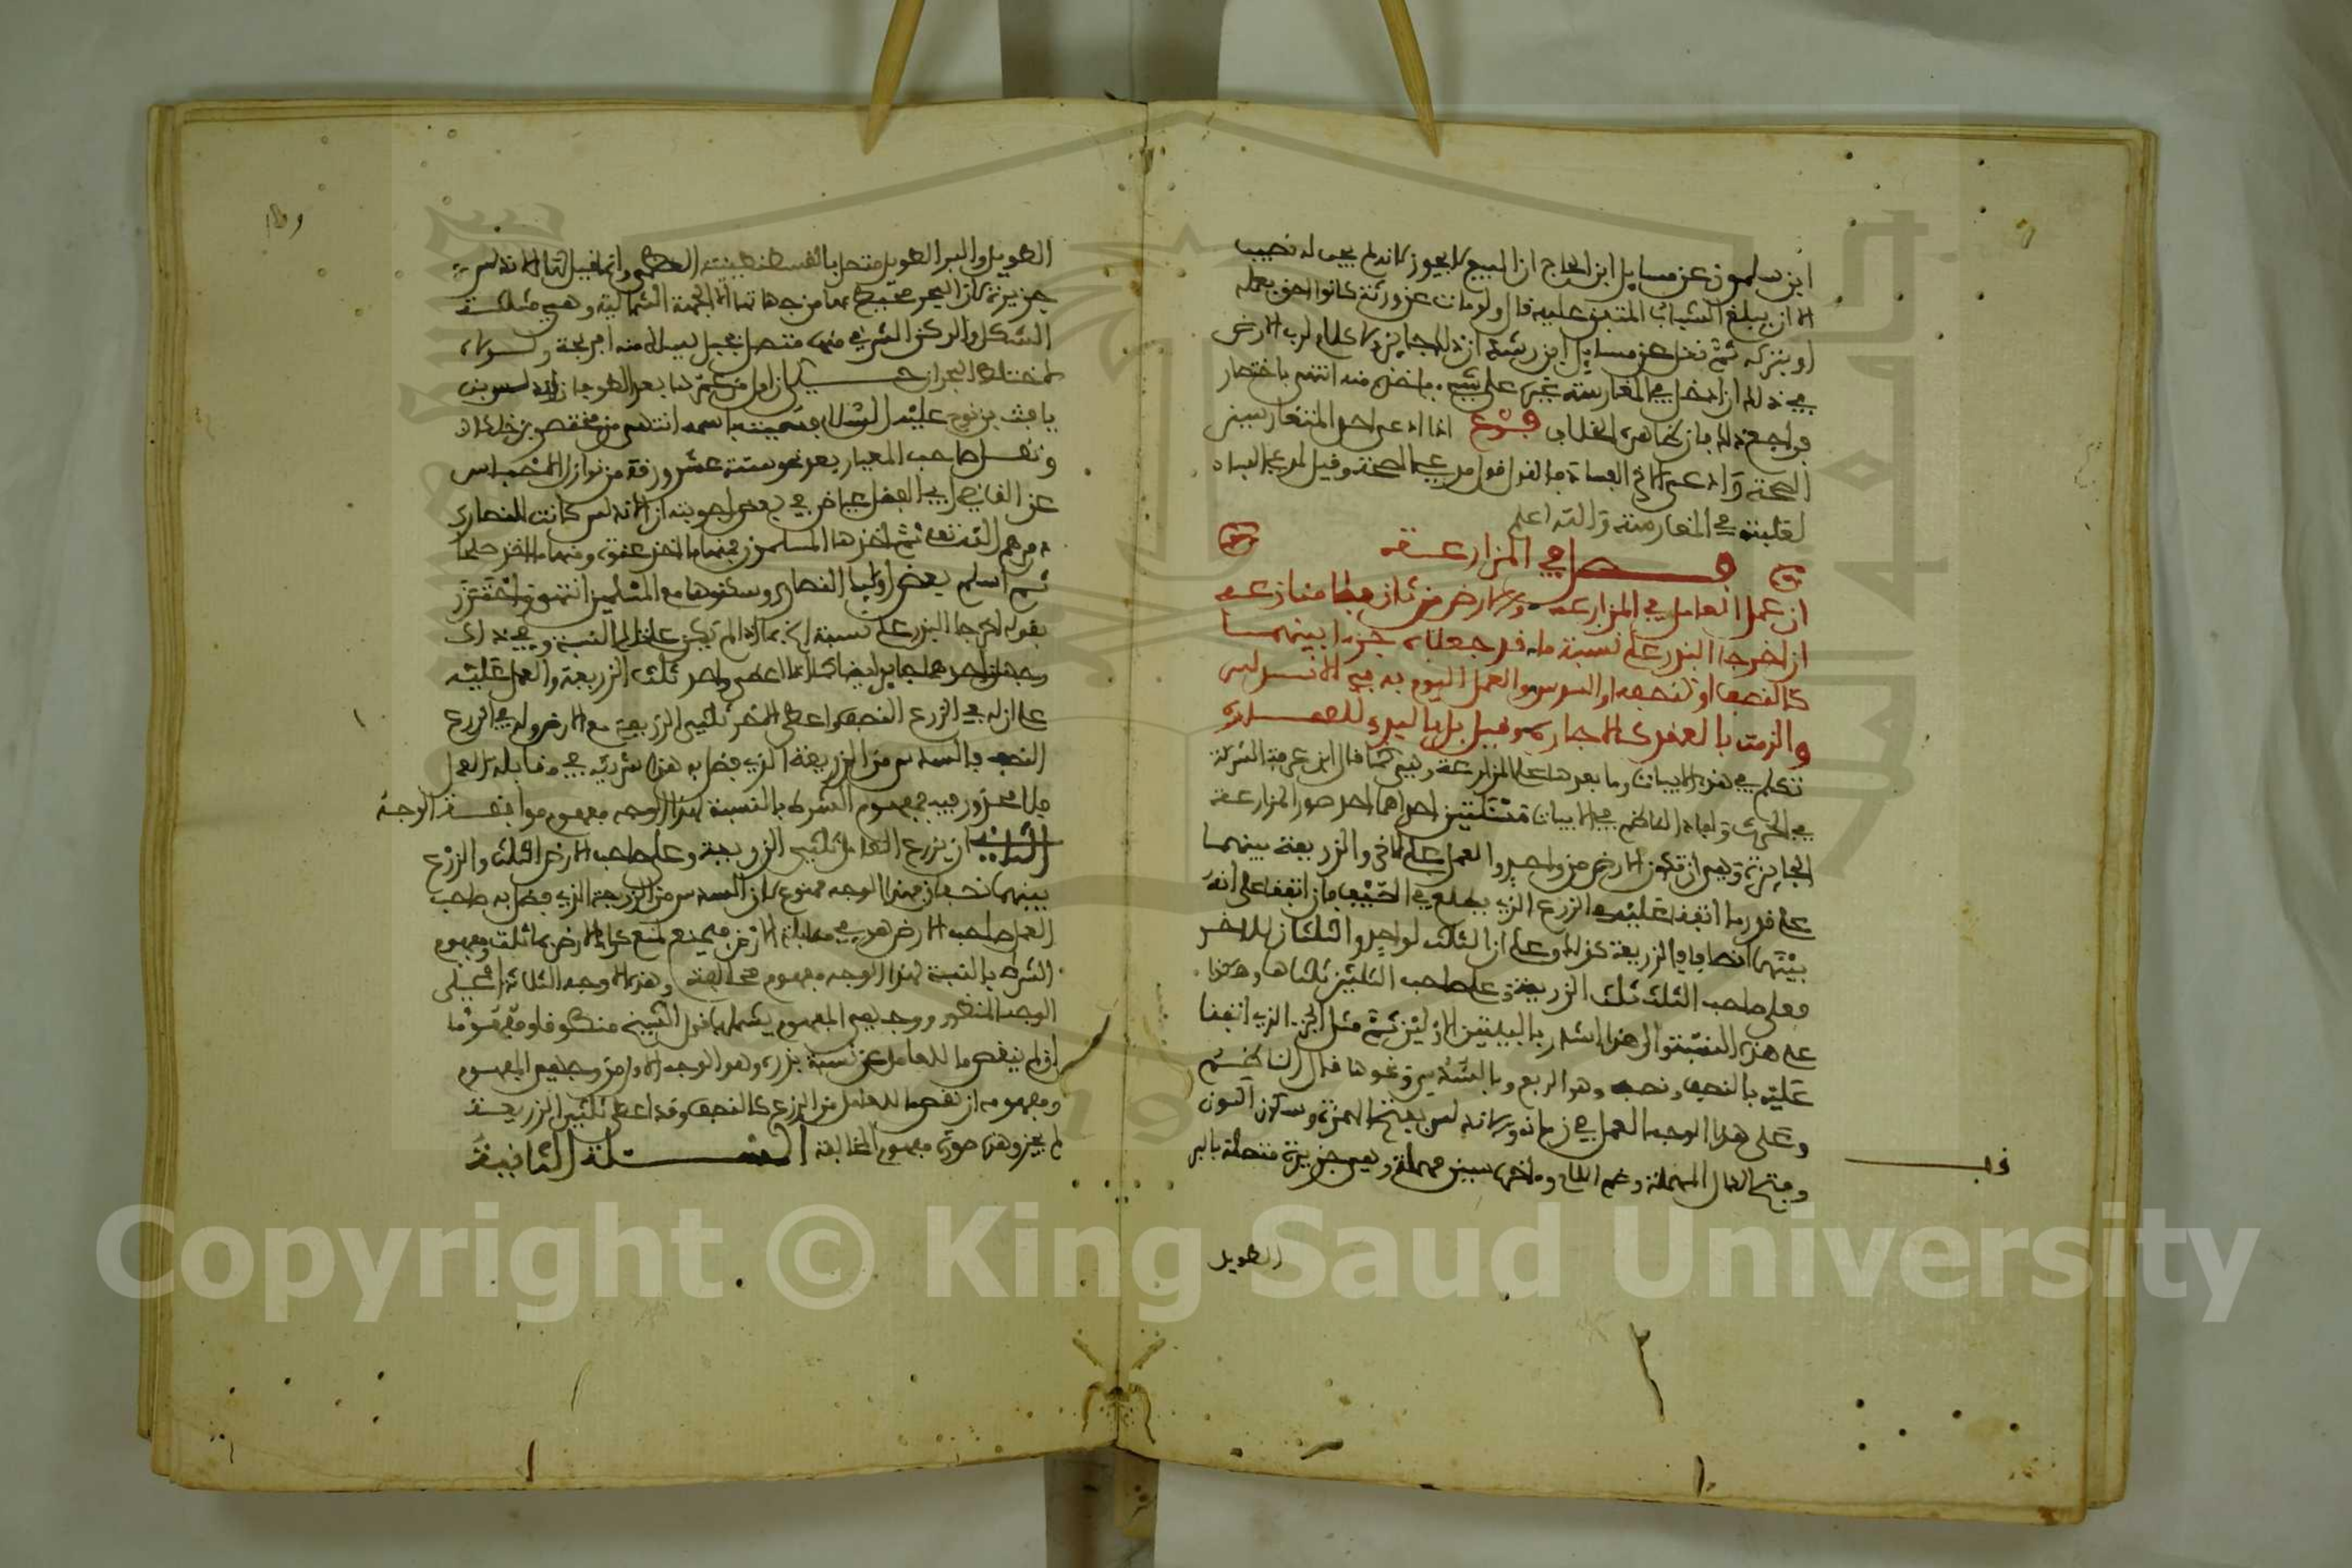 ابن سلمون عن مسايل ابن الحاج ان البيع لا يجوز لانه لم يجب له نصيب
الا ان يبلغ الشباب المتفق عليه قال ولو مات عن ورثة كانوا احق بعمله
او بتركه ثم نقل عن مسايل ابن رشد ان ذلك جايز لا كلام لرب الارض
في ذلك ان ادخل في المغارسة غيره على شيء ياخذه منه انتهى باختصار
فراجع ذلك فان ظاهره الخلاف فرع اذا ادعى احد المتغارسين
الصحة وادعى الاخر الفساد فالقول قول مدعي الصحة وقيل لمدعي الفساد
لغلبته في المغارسة والله اعلم
فصل في المزارعة
ان عمل العامل في المزارعه والارض من ثان فما من مانعه
ان اخرجا البذر على نسبة ما قد جعلاه جزءا بينهما
كالنصف او كنصفه او السدس والعمل اليوم به في الاندلس
والزمت بالعقد كالاجاره وقيل بل بالبدء للعماره
تكلم في هذه الابيات وما بعدها على المزارعة وهي كما قال ابن عرفة الشركة
في الحرث وافاد الناظم في الابيات مسئلتين احداهما احد صور المزارعة
الجايزة وهي ان تكون الارض من واحد والعمل على الاخر والزريعة بينهما
على قدر ما اتفقا عليه في الزرع الذي يطلع في الصيف فان اتفقا على انه
بينهما انصافا فالزريعة كذلك وعلى ان الثلث لواحد والثلثان للاخر
فعلى صاحب الثلث ثلث الزريعة وعلى صاحب الثلثين ثلثاها وهكذا
على هذه النسبة والى هذا اشار بالبيتين الاولين ثم مثل الجزء الذي اتفقا
عليه بالنصف ونصفه وهو الربع وبالسدس ونحوها قال الناظم
وعلى هذا الوجه العمل في زمانه والاندلس بفتح الهمزة وسكون النون
وفتح الدال المهملة وضم اللام واخره سين مهملة وهي جزيرة متصلة بالبر
قف
الطويل
الطويل والبر الطويل متصل بالقسطنطينية العظمى وانما قيل لها الاندلس
جزيرة لان البحر محيط بها من جهاتها الا الجهة الشمالية وهي مثلثة
الشكل والركن الشرقي منها متصل بجبل يسلك منه افرنجة ولولاه
لاختلط البحران حكي ان اول من عمرها بعد الطوفان اندلس بن
يافث بن نوح عليه السلام فسميت باسمه انتهى من مختصر بن خلكان
ونقل صاحب المعيار بعد نحو ستة عشر ورقة من نوازل الاحباس
عن القاضي ابي الفضل عياض في بعض اجوبته ان الاندلس كانت للنصارى
دمرهم الله تعالى ثم اخذها المسلمون فمنها ما اخذ عنوة ومنها ما اخذ صلحا
ثم اسلم بعض اوليك النصارى وسكنوها مع المسلمين انتهى واحترز
بقوله اخرجا البذر على نسبة الخ مما اذا لم يكن على تلك النسبة وفي ذلك
وجهان احدهما جايز ايضا كما اذا اعطى واحد ثلث الزريعة والعمل عليه
على ان له في الزرع النصف واعطى الاخر ثلثي الزريعة مع الارض وله في الزرع
النصف فالسدس من الزريعة الذي فضل به هذا شريكه في مقابلة العمل
فلا محذور فيه فمفهوم الشرط بالنسبة لهذا الوجه مفهوم موافقة الوجه
الثاني ان يزرع العامل ثلثي الزريعة وعلى صاحب الارض الثلث والزرع
بينهما نصفان فهذا الوجه ممنوع لان السدس من الزريعة الذي فضل به صاحب
العمل صاحب الارض هو في مقابلة الارض فيمنع لمنع كراء الارض بما تنبت ومفهوم
الشرط بالنسبة لهذا الوجه مفهوم مخالفة وهذه الاوجه الثلاثة اعني
الوجه المنطوق ووجهي المفهوم يشملها قول الشيخ منطوقا ومفهوما
ان لم ينقص ما للعامل عن نسبة بذره وهو الوجه الاول من وجهي المفهوم
ومفهومه ان نقص ما للعامل من الزرع كالنصف وقد اعطى ثلثي الزريعة
لم يجز وهذه صورة مفهوم المخالفة المسئلة الثانية